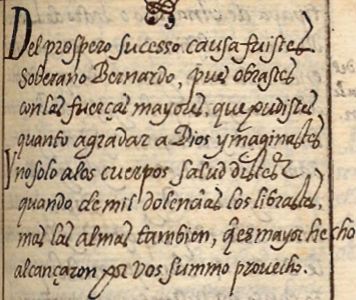 Del prospero sucesso causa fuistes
Soberano Bernardo, pues obrastes
con las fuerças mayores, que pudistes
quanto agradar a Dios ymaginastes
y no solo a los cuerpos salud distes
quando de mis dolencias los librastes,
mas las almas tambien, q̃ es mayor hecho
alcançaron por vos summo provecho.